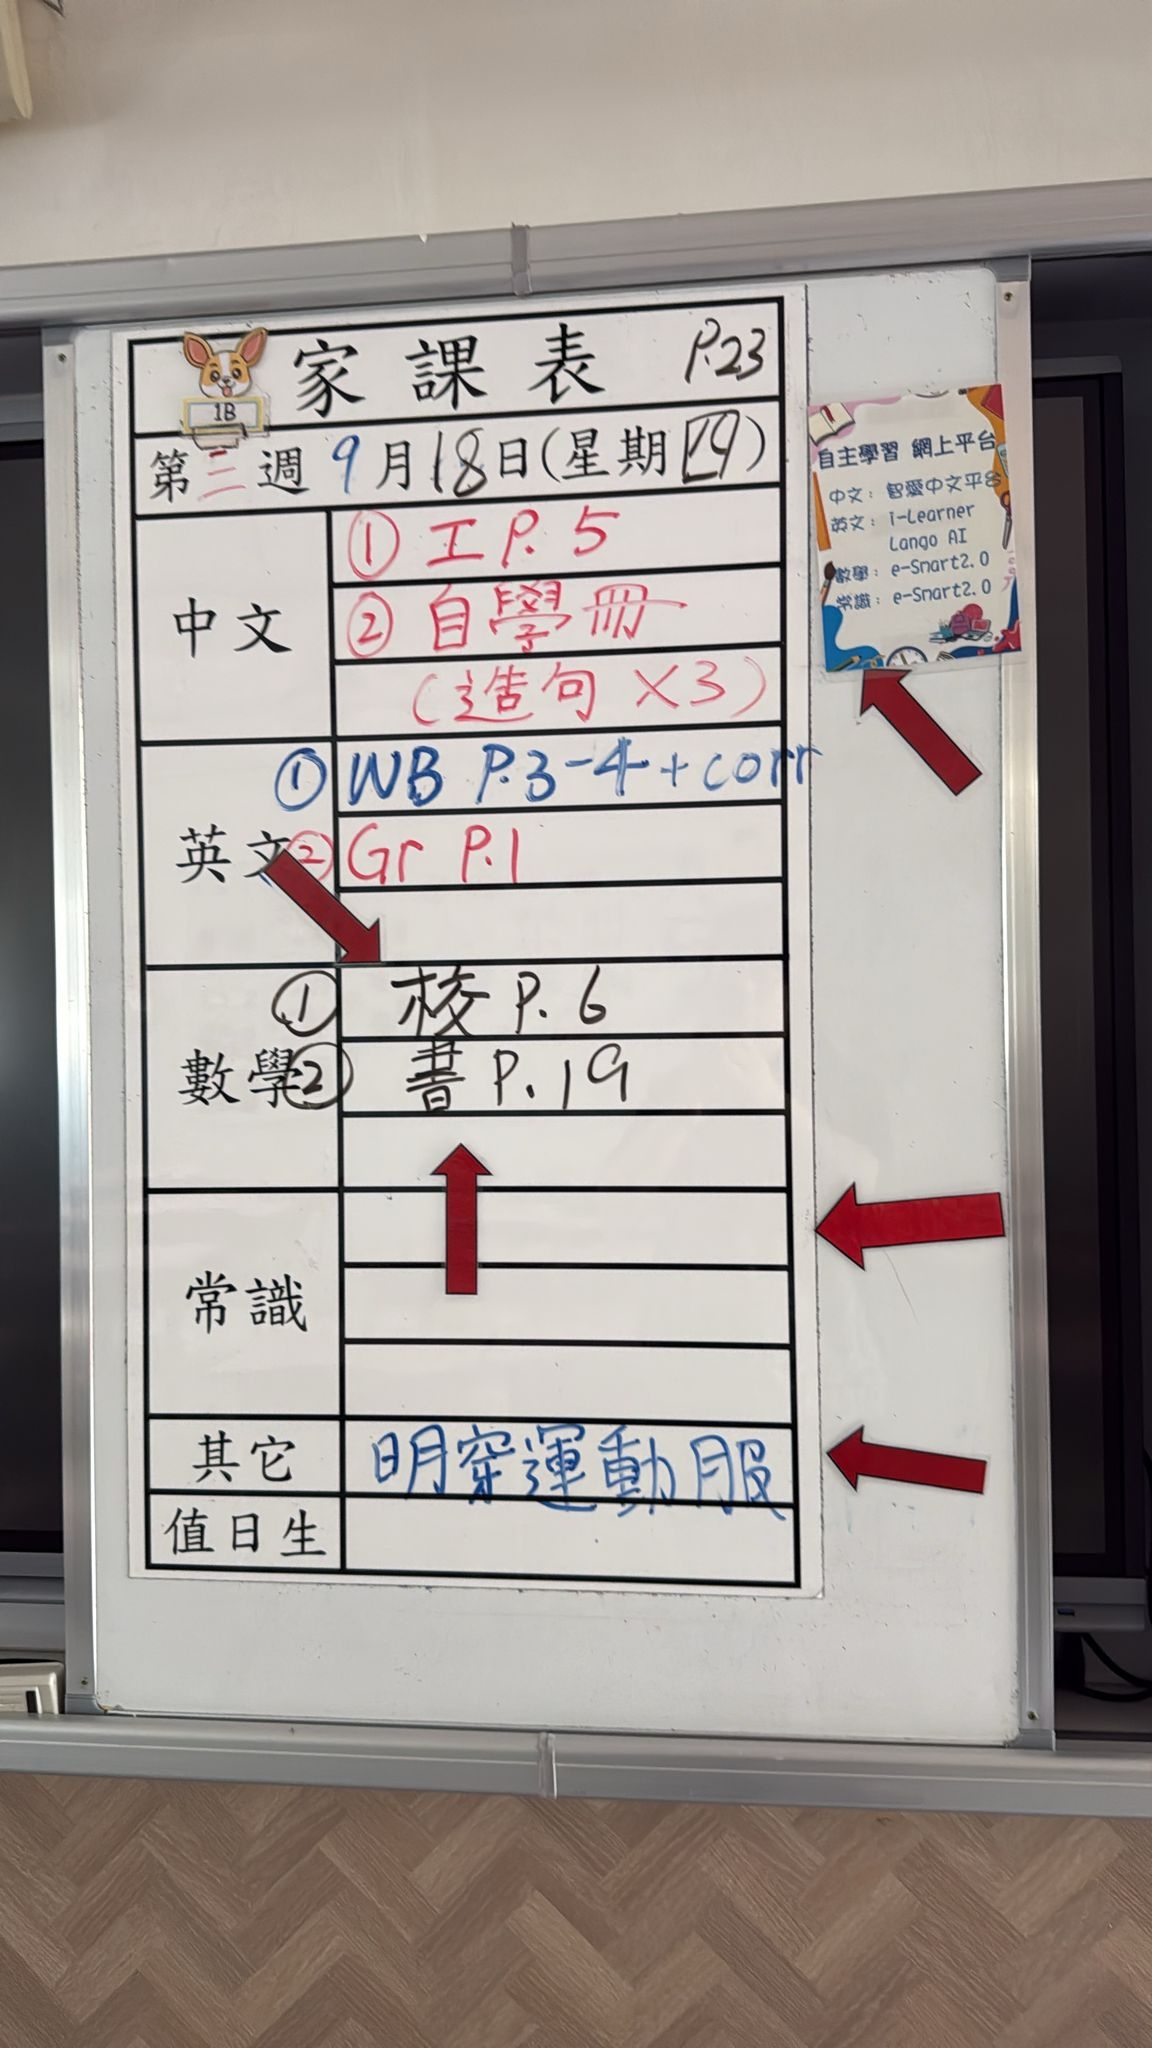 家課表 P.23
1B
第三週 9月18日(星期四)
中文
① 工 P.5
② 自學冊
(造句 X3)
英文
① WB P.3-4 + corr
② Gr P.1
數學
① 校 P.6
② 書 P.19
常識
其它
明穿運動服
值日生
自主學習 網上平台
中文： 智愛中文平台
英文： i-Learner
Lango AI
數學： e-Smart2.0
常識： e-Smart2.0